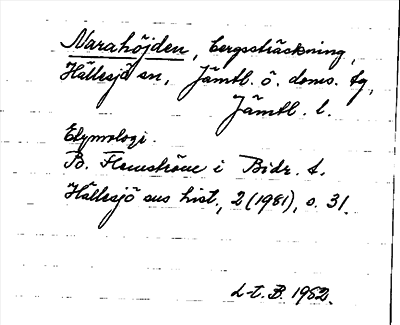 Narahöjden, bergssträckning,
Hällesjö sn, Jämtl. ö. doms. tg,
Jämtl. l.
Etymologi.
B. Flemström i Bidr. t.
Hällesjö sns hist., 2 (1981), s. 31.
L-t. B. 1982.